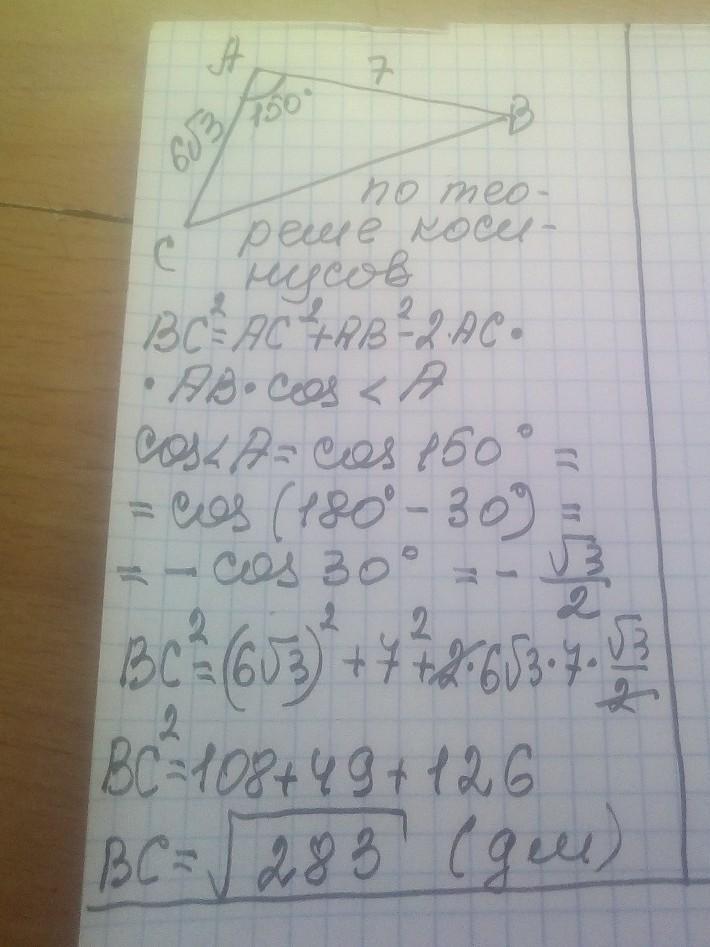 A 7
150° B
6√3
по тео-
C реме коси-
нусов
BC²=AC²+AB²-2·AC·
·AB·cos<A
cos<A=cos150°=
=cos(180°-30°)=
=-cos30°=-√3/2
BC²=(6√3)²+7²+2·6√3·7·√3/2
BC²=108+49+126
BC=√283 (дм)